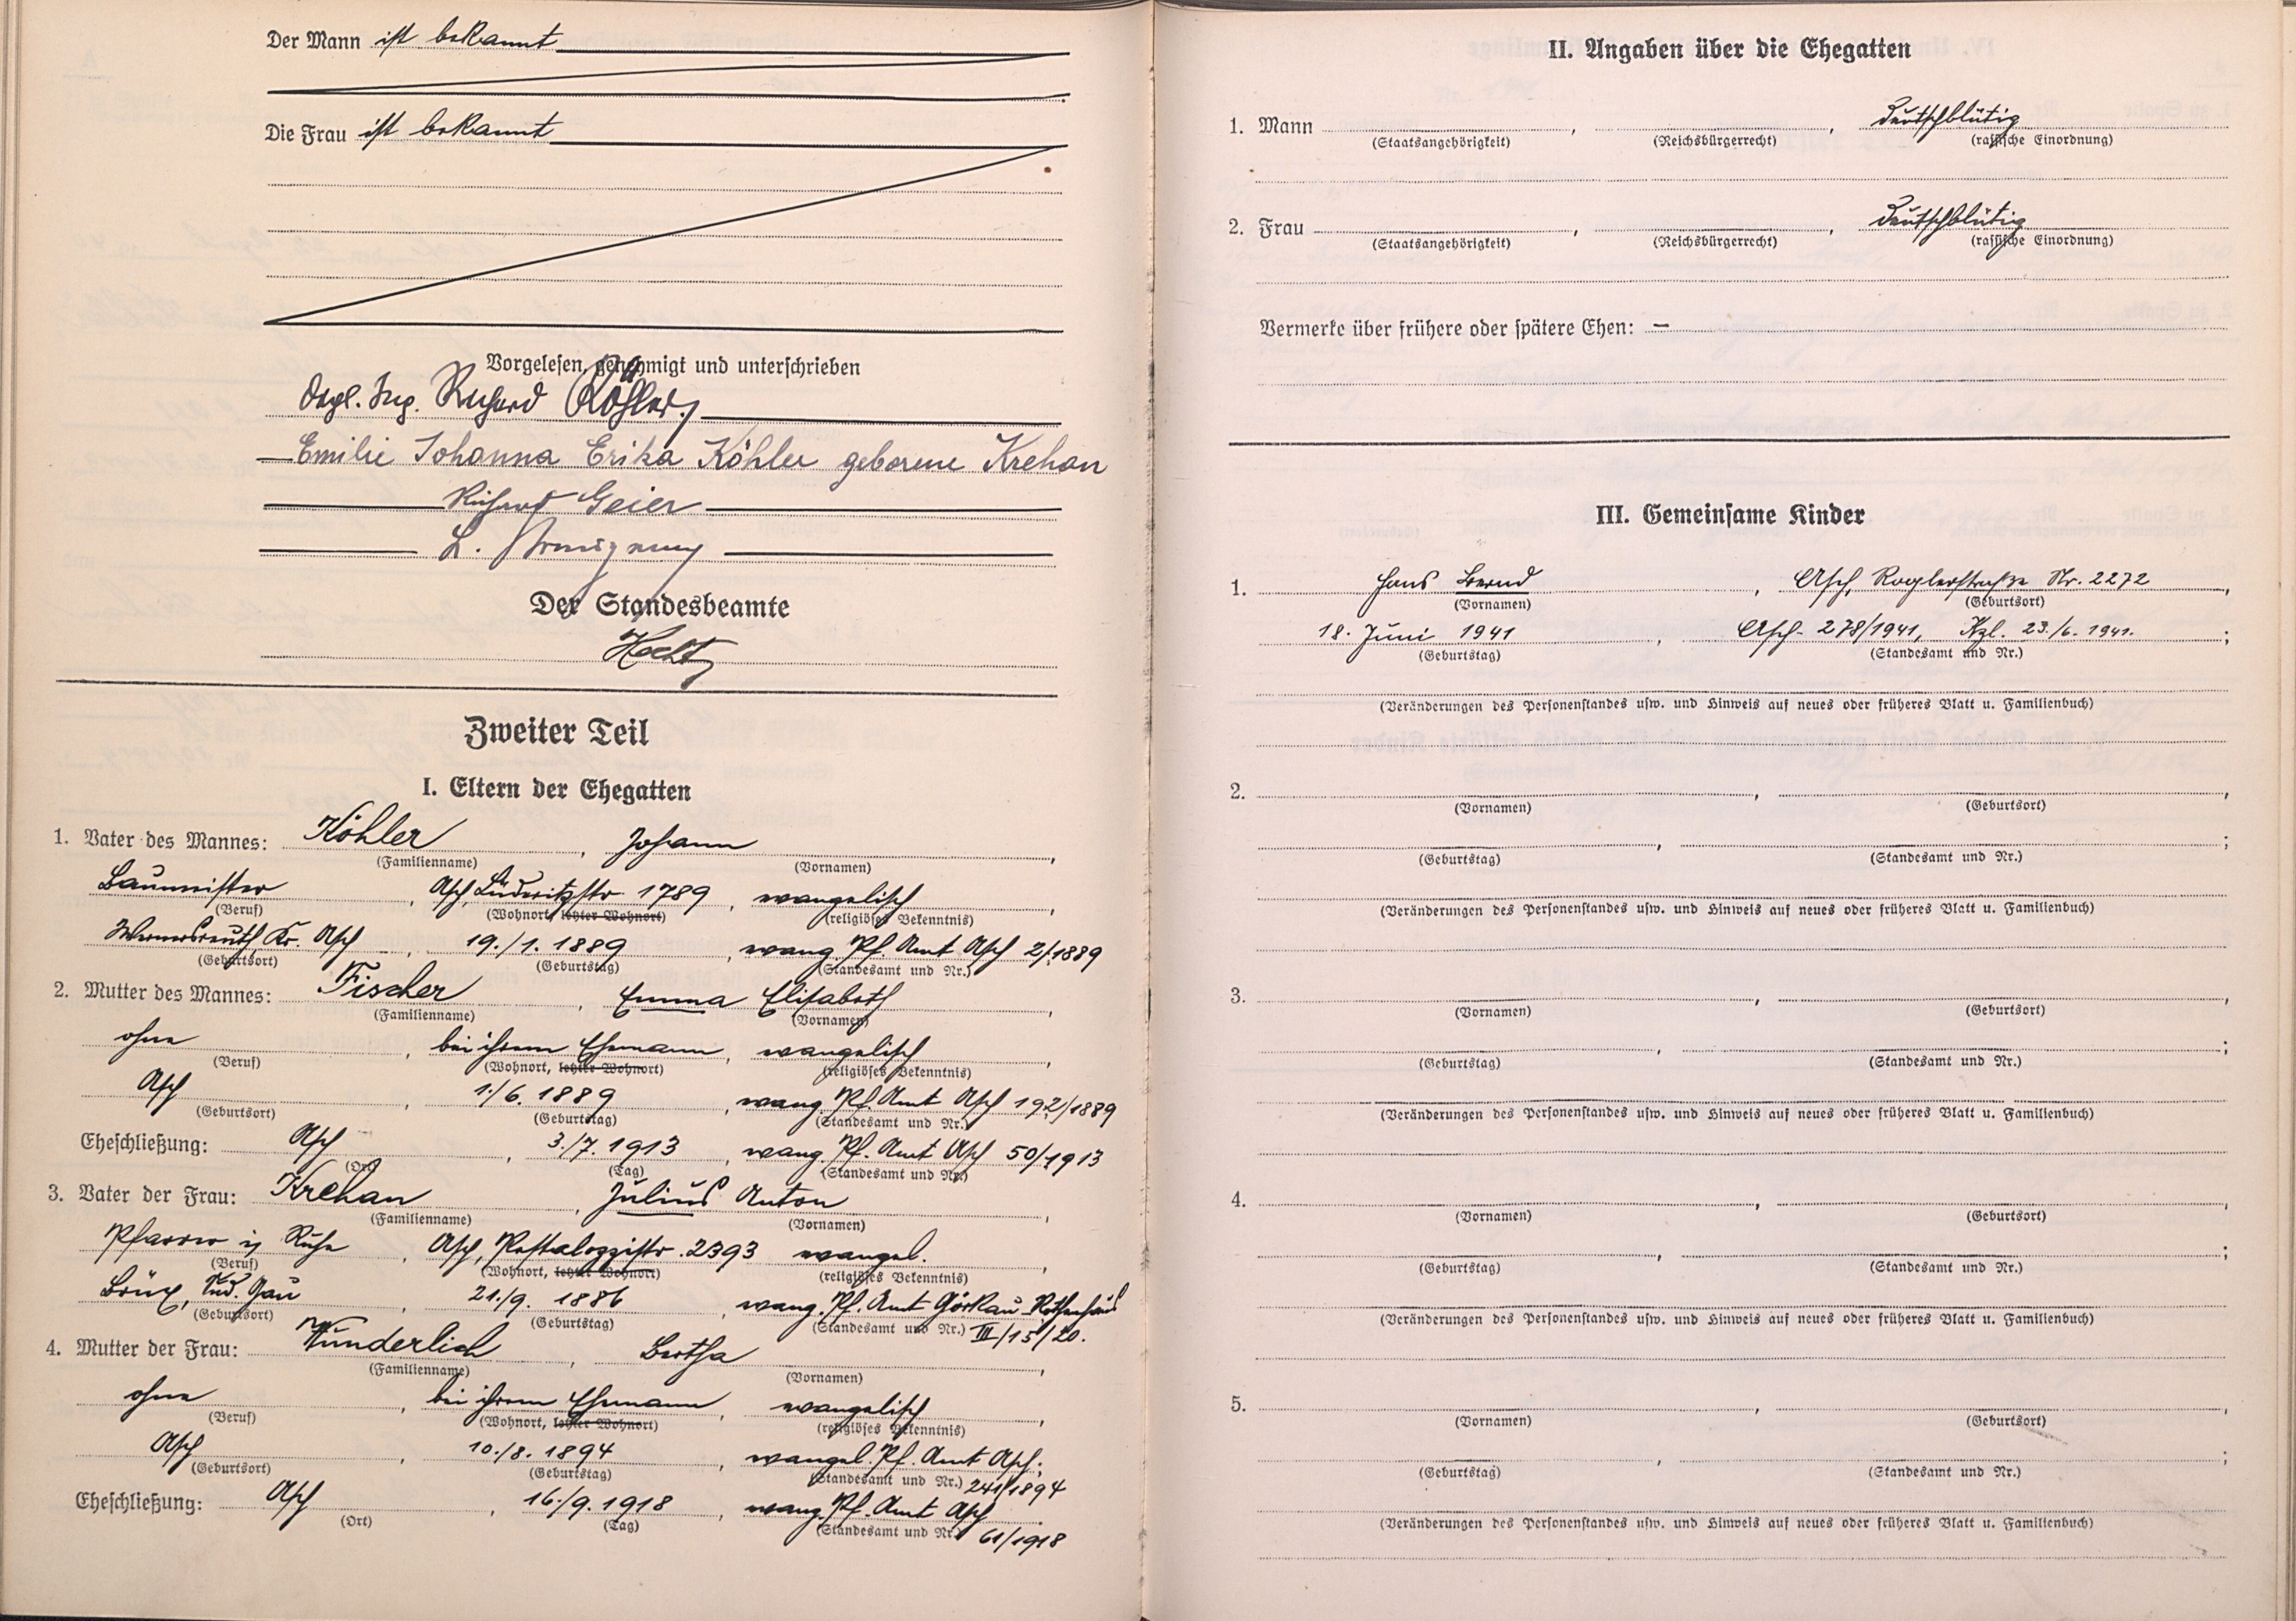 Der Mann ist bekannt
Die Frau ist bekannt
Vorgelesen, genehmigt und unterschrieben
Dipl. Ing. Richard Köhler
Emilie Johanna Erika Köhler geborene Krehan
Richard Geier
L.
Der Standesbeamte
Hecht
Zweiter Teil
I. Eltern der Ehegatten
1. Vater des Mannes: Köhler, Johann,
(Familienname) (Vornamen)
Baumeister, Asch, Lüderitzstr. 1789, evangelisch,
(Beruf) (Wohnort, letzter Wohnort) (religiöses Bekenntnis)
Wernersreuth, Kr. Asch, 19./1. 1889, evang. Pf. Amt Asch 2/1889
(Geburtsort) (Geburtstag) (Standesamt und Nr.)
2. Mutter des Mannes: Fischer, Emma Elisabeth,
(Familienname) (Vornamen)
ohne, bei ihrem Ehemann, evangelisch,
(Beruf) (Wohnort, letzter Wohnort) (religiöses Bekenntnis)
Asch, 1./6. 1889, evang. Pf. Amt Asch 192/1889
(Geburtsort) (Geburtstag) (Standesamt und Nr.)
Eheschließung: Asch, 3./7. 1913, evang. Pf. Amt Asch 50/1913
(Ort) (Tag) (Standesamt und Nr.)
3. Vater der Frau: Krehan, Julius Anton,
(Familienname) (Vornamen)
Pfarrer i. Ruhe, Asch, Pestalozzistr. 2393 evangel.,
(Beruf) (Wohnort, letzter Wohnort) (religiöses Bekenntnis)
Brüx, Sud. Gau, 21./9. 1886, evang. Pf. Amt Görkau-Rothenhaus
(Geburtsort) (Geburtstag) (Standesamt und Nr.) III/15/20.
4. Mutter der Frau: Wunderlich, Bertha,
(Familienname) (Vornamen)
ohne, bei ihrem Ehemann, evangelisch,
(Beruf) (Wohnort, letzter Wohnort) (religiöses Bekenntnis)
Asch, 10./8. 1894, evangel. Pf. Amt Asch;
(Geburtsort) (Geburtstag) (Standesamt und Nr.) 241/1894
Eheschließung: Asch, 16./9. 1918, evang. Pf. Amt Asch
(Ort) (Tag) (Standesamt und Nr.) 61/1918
II. Angaben über die Ehegatten
1. Mann , , deutschblütig
(Staatsangehörigkeit) (Reichsbürgerrecht) (rassische Einordnung)
2. Frau , , deutschblütig
(Staatsangehörigkeit) (Reichsbürgerrecht) (rassische Einordnung)
Vermerke über frühere oder spätere Ehen: —
III. Gemeinsame Kinder
1. Hans Bernd, Asch, Roglerstraße Nr. 2272,
(Vornamen) (Geburtsort)
18. Juni 1941, Asch 278/1941, Kzl. 23./6. 1941.;
(Geburtstag) (Standesamt und Nr.)
(Veränderungen des Personenstandes usw. und Hinweis auf neues oder früheres Blatt u. Familienbuch)
2. , ,
(Vornamen) (Geburtsort)
, ;
(Geburtstag) (Standesamt und Nr.)
(Veränderungen des Personenstandes usw. und Hinweis auf neues oder früheres Blatt u. Familienbuch)
3. , ,
(Vornamen) (Geburtsort)
, ;
(Geburtstag) (Standesamt und Nr.)
(Veränderungen des Personenstandes usw. und Hinweis auf neues oder früheres Blatt u. Familienbuch)
4. , ,
(Vornamen) (Geburtsort)
, ;
(Geburtstag) (Standesamt und Nr.)
(Veränderungen des Personenstandes usw. und Hinweis auf neues oder früheres Blatt u. Familienbuch)
5. , ,
(Vornamen) (Geburtsort)
, ;
(Geburtstag) (Standesamt und Nr.)
(Veränderungen des Personenstandes usw. und Hinweis auf neues oder früheres Blatt u. Familienbuch)